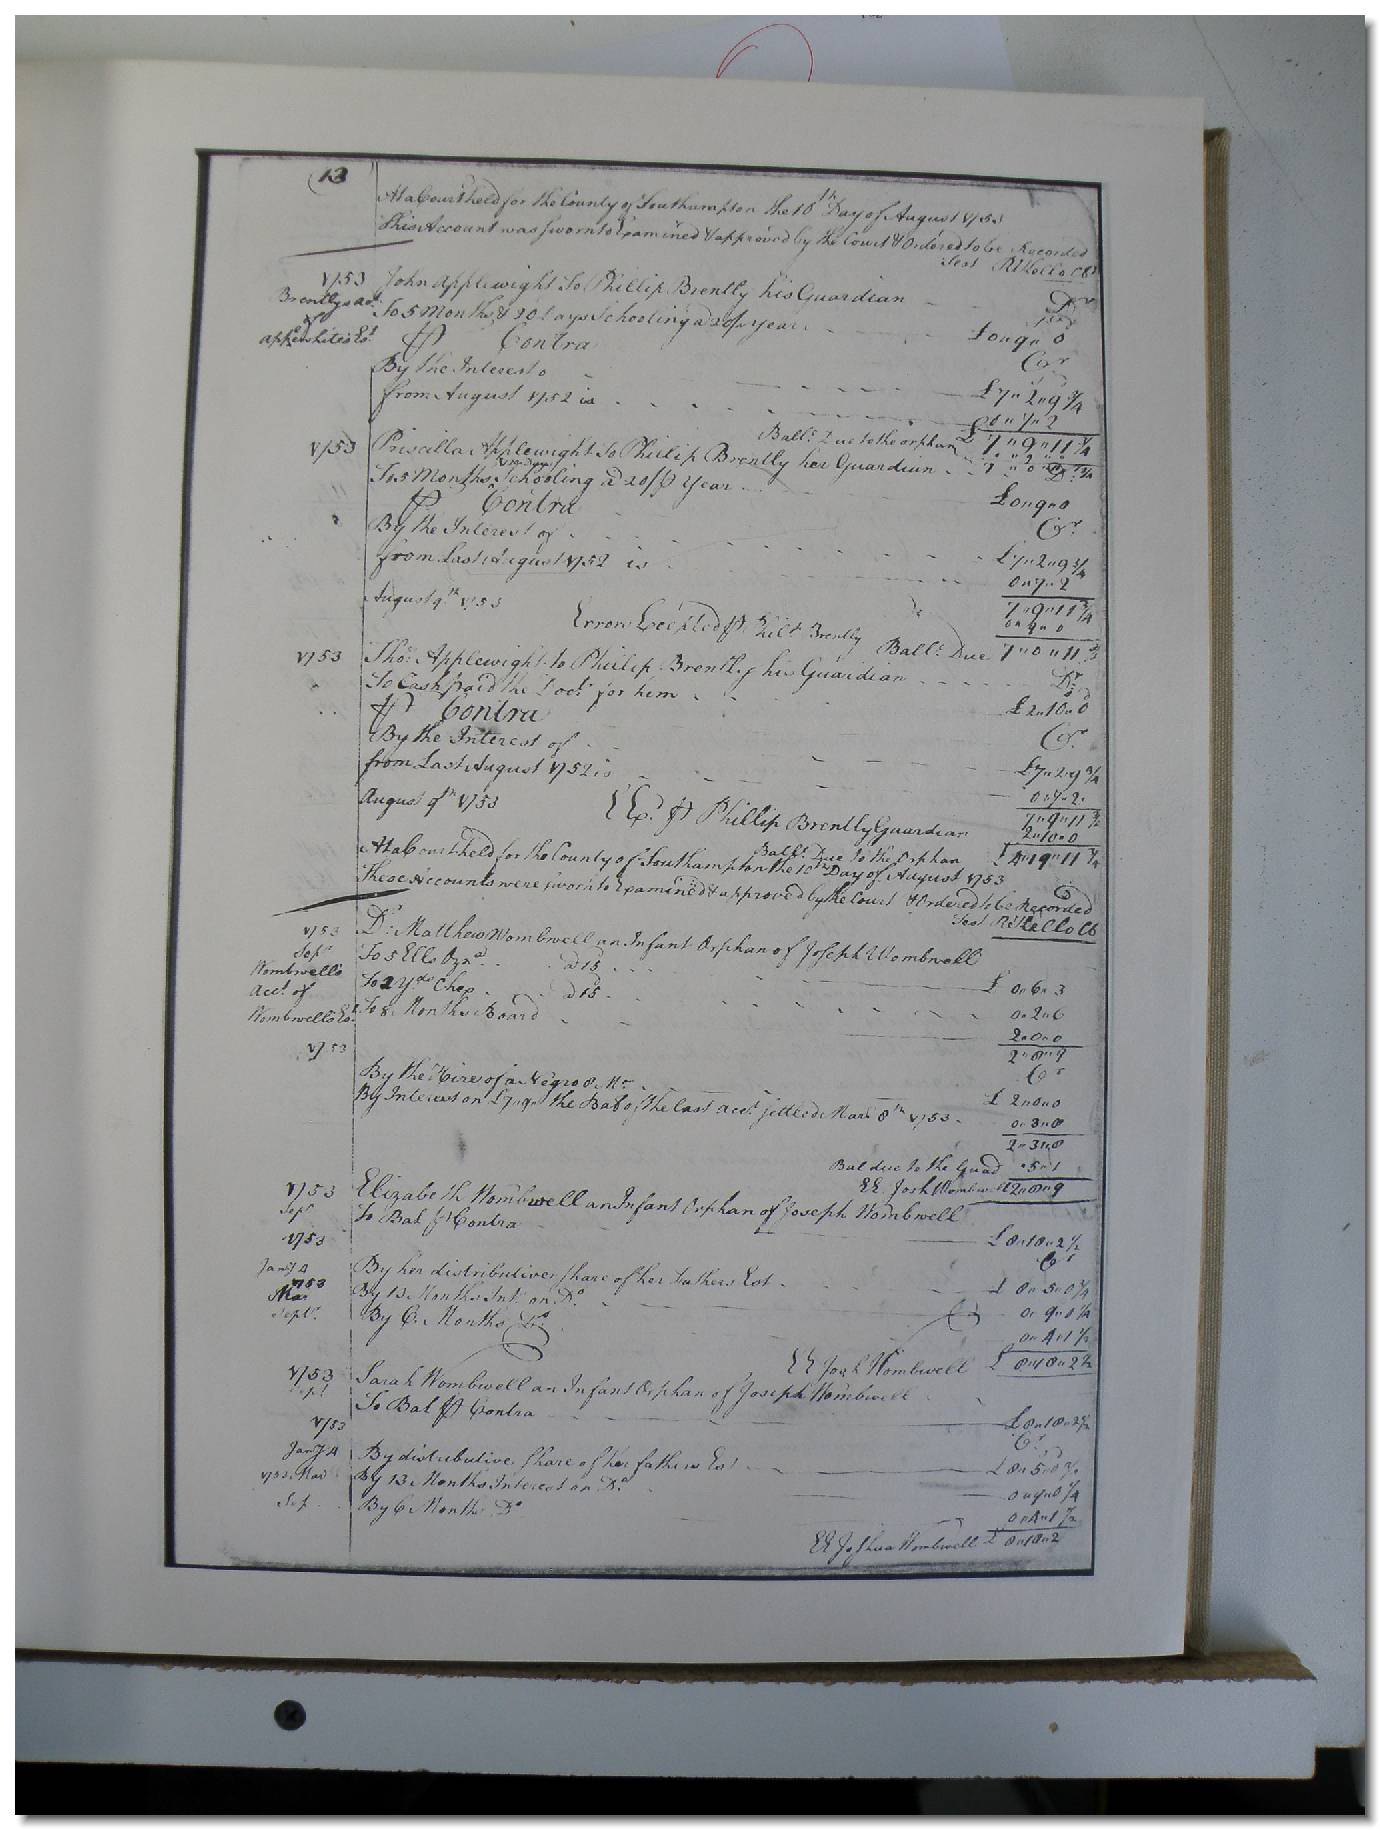 13
At a Court held for the County of Southampton the 10th Day of August 1753
This Account was Sworn to Examined & approved by the Court & Ordered to be Recorded
Test
1753 John Applewight To Phillip Brently his Guardian Dr
Brentlys act
of
To 5 Months & 20 Days Schooling a 20/ year £0"9"0
Contra Cr
By the Interest o
from August 1752 is £7"2"9 3/4
0"7"2
Balle. Due to the orphan £7"9"11 3/4
1753 Priscilla Applewight To Phillip Brently her Guardian Dr
To 5 Months Schooling a 20/ Year £0"9"0
Contra Cr
By the Interest of
from Last August 1752 is £7"2"9 3/4
0"7"2
7"9"11 3/4
0"9"0
August 9th 1753 Errors Excepted Phil. Brently Balle. Due 7"0"11 3/4
1753 Thos. Applewight to Phillip Brently his Guardian Dr
To Cash paid the Doctr for him £2"10"0
Contra Cr
By the Interest of
from Last August 1752 is £7"2"9 3/4
0"7"2
7"9"11 3/4
2"10"0
August 9th 1753 E Ex. Phillip Brently Guardian
Balle. Due to the Orphan £4"19"11 3/4
At a Court held for the County of Southampton the 10th Day of August 1753
These Accounts were Sworn to Examined & approved by the Court & Ordered to be Recorded
Test
1753 Dr. Matthew Wombwell an Infant Orphan of Joseph Wombwell
Sepr To 5 Ells Ozna. a 15 £0"6"3
Wombwells To 2 yds Chex a 15 0"2"6
Acct. of
Wombwells Est. To 8 Months Board 2"0"0
2"8"9
1753 Cr
By the Hire of a Negro 8 Mo. £2"0"0
By Interest on £7"9" the Bal of the last acct. settled Mar 8th 1753 0"3"8
2"3"8
Bal due to the Guad "5"1
EE Josh Wombwell £2"8"9
1753 Elizabeth Wombwell an Infant Orphan of Joseph Wombwell
Sepr To Bal Contra £8"18"2 1/2
1753 Cr
Jany 4 By her distributive share of her fathers Est £8"5"0 3/4
1753
Mar By 13 Months Int. on Do. 0"9"0 1/4
Sept. By 6 Months Do. 0"4"1 1/2
EE Josh Wombwell £8"18"2 1/2
1753 Sarah Wombwell an Infant Orphan of Joseph Wombwell
Sept To Bal Contra £8"18"2 1/2
1753 Cr
Jany 4 By distributive share of her fathers Est £8"5"0 3/4
1753 Mar By 13 Months Interest on Do. 0"9"0 1/4
Sep By 6 Months Do 0"4"1 1/2
EE Joshua Wombwell £8"18"2